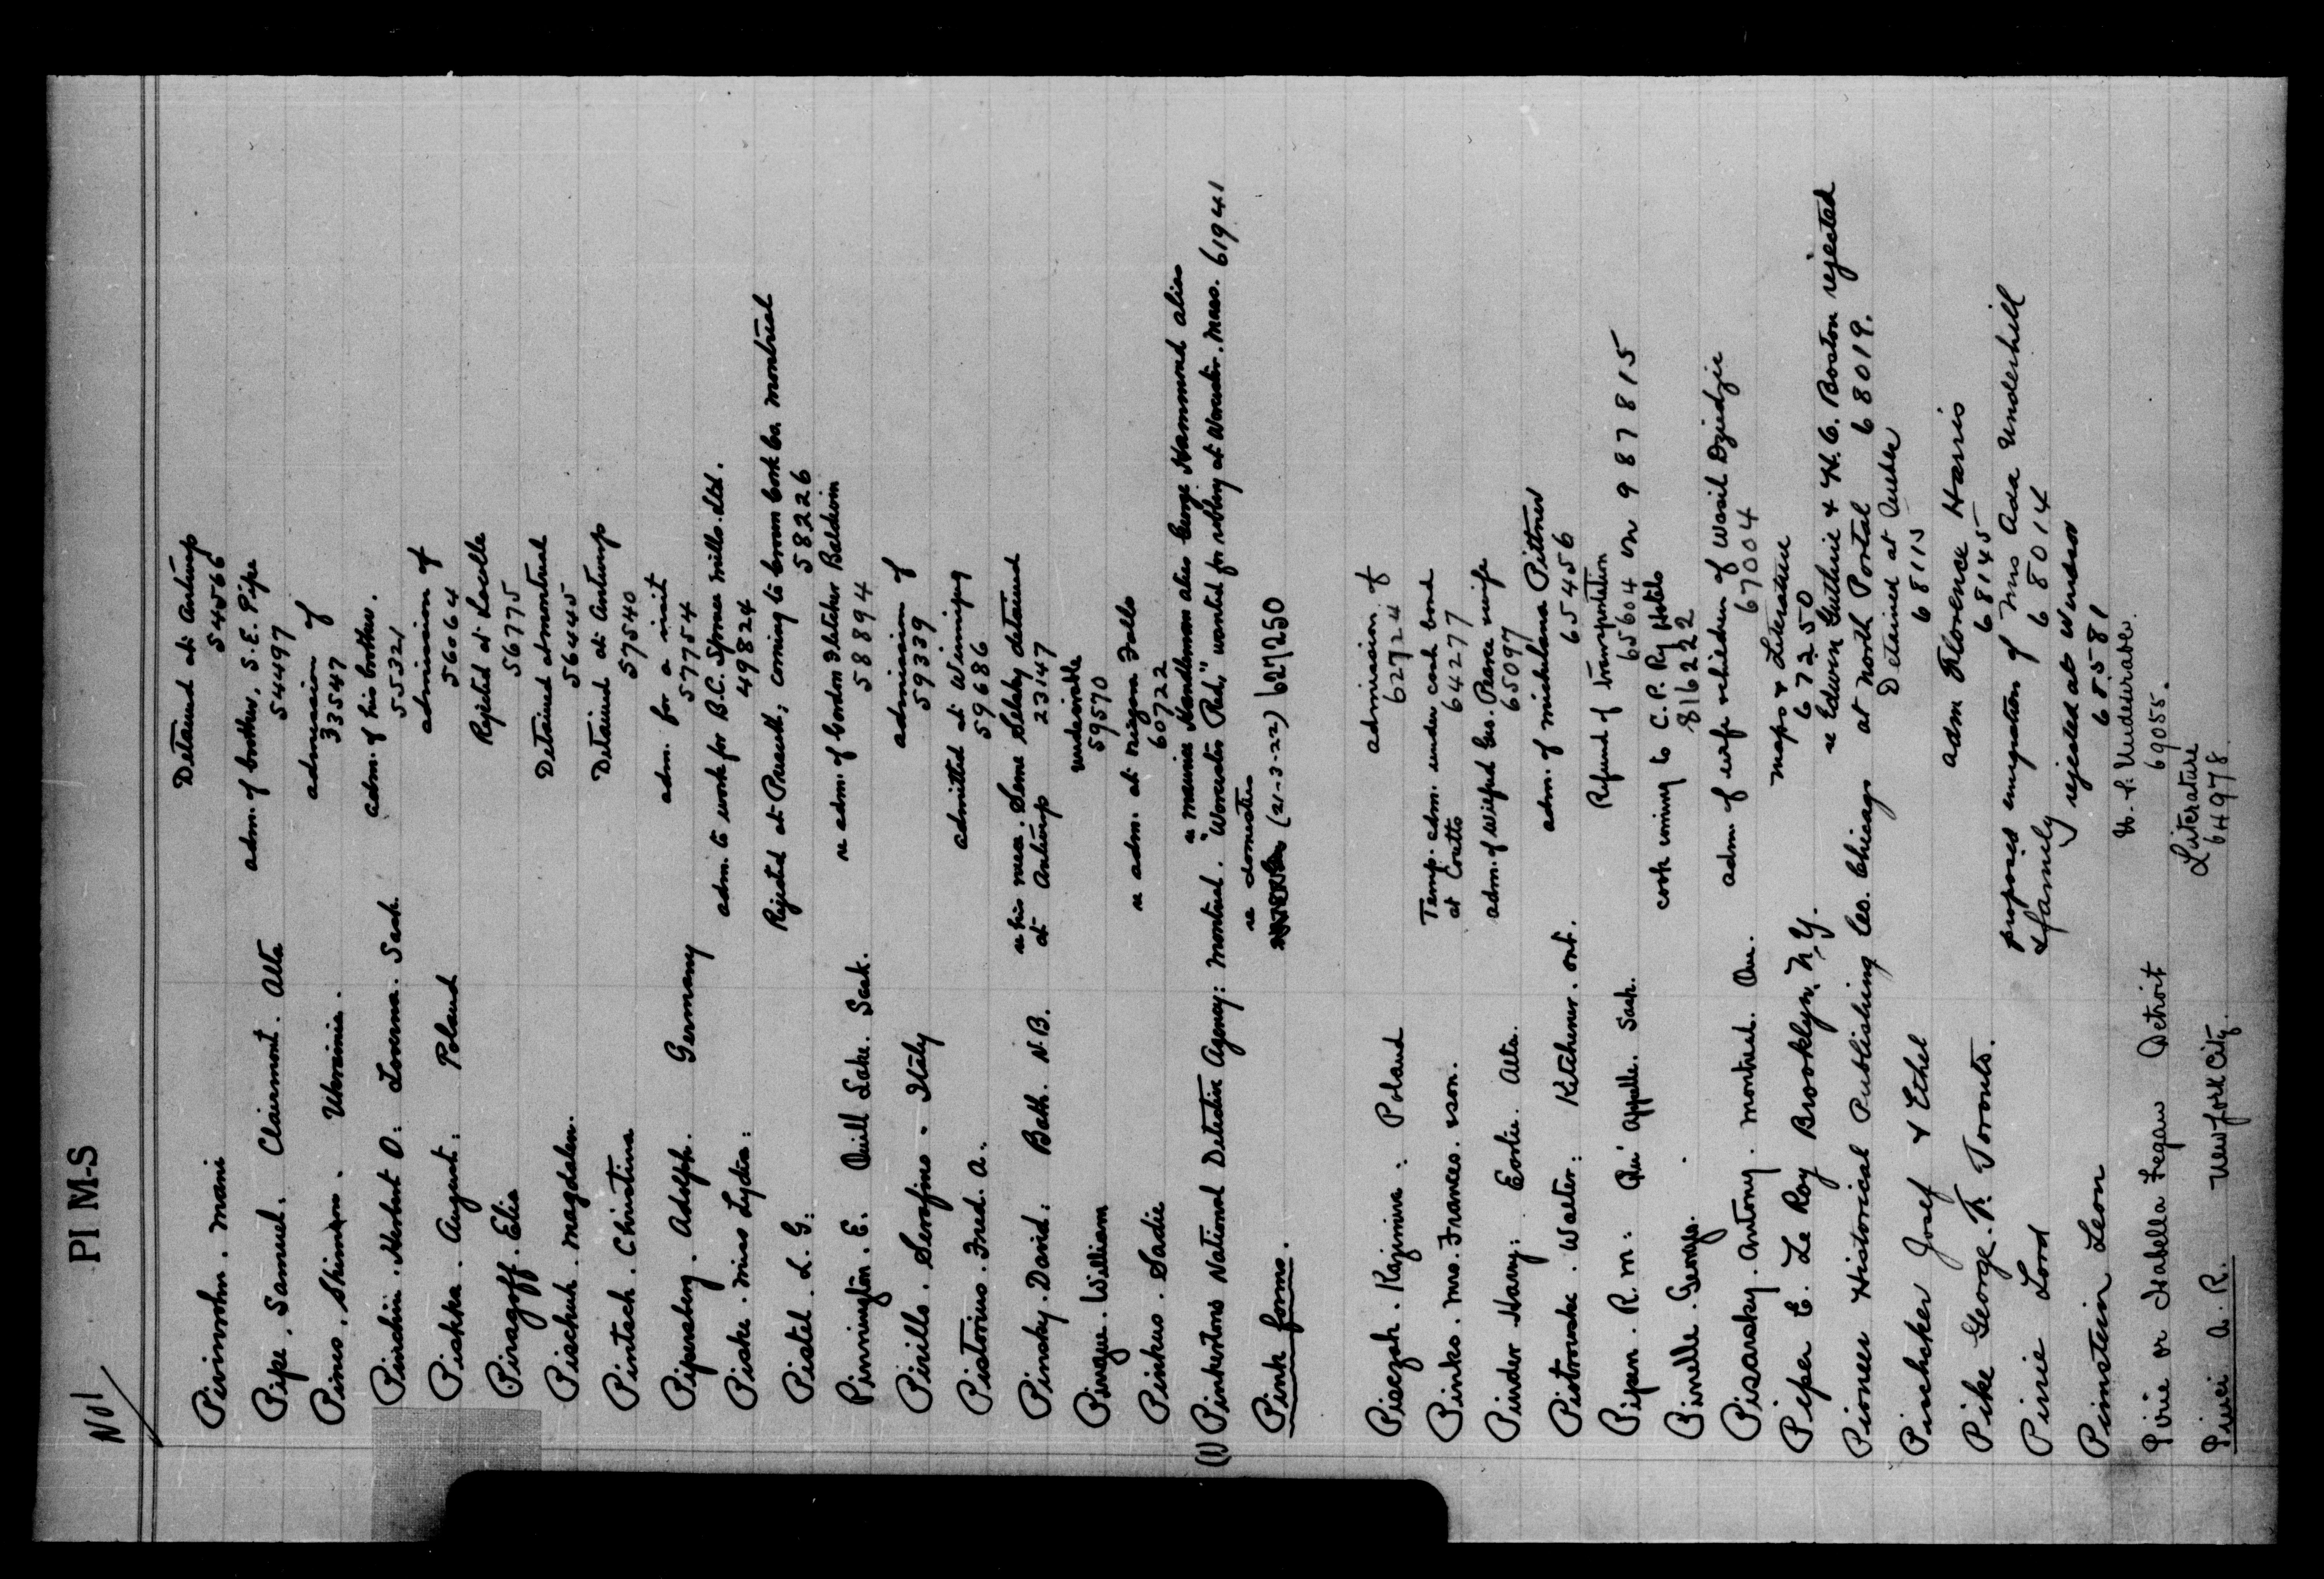 No 1
PI M-S
Pivinrohn. Marie Detained at Antwerp
54566
Pipe. Samuel. Clairmont. Alta adm. of brother, S.E. Pipe
54497
Pinus, Shimon. Ukrainia. admission of
33547
Pinchin. Herbert O: Lorenna. Sask adm. of his brother.
55321
Pishka. August: Poland admission of
56064
Piragoff. Elia Rejected at Lacolle
56775
Pischuk. Magdalen. Detained at Montreal
56445
Pintach. Christina Detained at Antwerp
57540
Pipensberg. Adolph. Germany adm. for a visit
57754
Piske. Miss Lydia: adm. to work for B.C. Spruce Mills. Ltd.
49824
Pistel. L. G: Rejected at Prescott, coming to Crown Cork Co. Montreal
58226
Pinnington. E. Quill Lake. Sask. re adm. of Gordon Fletcher Baldwin
58894
Pirillo. Serafino - Italy admission of
59339
Pistorius. Fred. A. admitted at Winnipeg
59686
Pinsky. David: Bath. N.B. re his niece. Seme Selesky detained
at Antwerp 23147
Pinque. William undesirable
59570
Pinkus. Sadie re adm. at Niagara Falls
60722
(1) Pinkertons National Detective Agency: Montreal. re Maurice Handleman alias George Hammond alias
"Worcester Red," wanted for robbery at Worcester. Mass. 61941
Pink forms. re domestics
(21-3-22) 627250
Pieczah. Kazimim: Poland admission of
62724
Pinko. Mrs. Frances. & son. Temp. adm. under cash bond
at Coutts 64277
Pinder Harry: Eorlie. Alta. adm. of Wilfred Geo. Pearce & wife
65097
Piotrowske. Walter: Kitchener. Ont. adm. of Michalena Pittner
65456
Pipen. R. M: Qu'Appelle. Sask. Refund of transportation
65604 on 987815
Pinelle. George. cook coming to C.P. Ry Hotels
816222
Pisarsky. Antony. Montreal. Que. adm. of wife & children of Wasil Dziedzic
67004
Piper E. Le Roy Brooklyn. N.Y. Maps & Literature
67250
Pioneer Historical Publishing Co. Chicago re Edwin Guthrie & H. C. Boston rejected
at North Portal 68019.
Pinchcker Josef & Ethel Detained at Quebec
68115
Pike George. F. Toronto. adm Florence Harris
68145
Pirie Lord proposed emigration of Mrs Ada Underhill
& family 68014
Pimstein Leon rejected at Windsor
68581
Pirie or Isabella Fegan Detroit U.S. Undesirable.
69055.
Pirvei A. R. New York City. Literature
64978